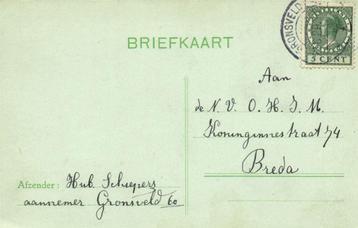 GRONSVELD
5 CENT
BRIEFKAART
Aan
de N. V. O. H. I. M.
Koninginnestraat 74
Breda
Afzender: Hub. Schepers
aannemer Gronsveld 60